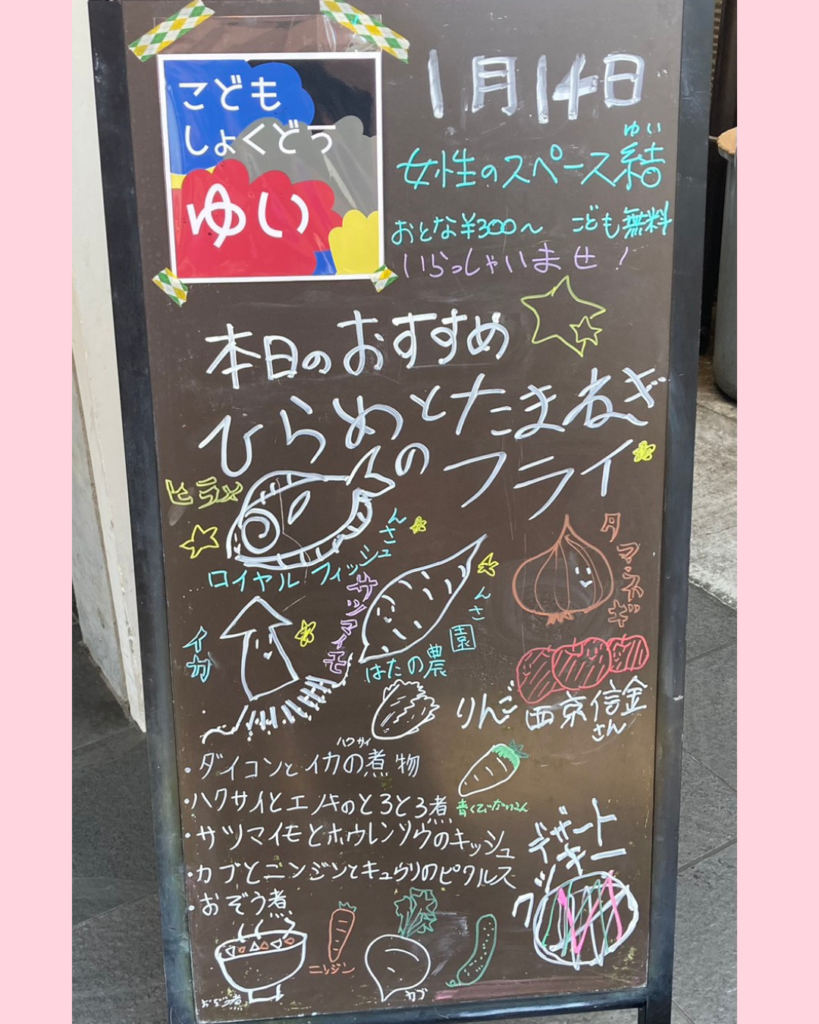 こども
しょくどう
ゆい
1月14日
ゆい
女性のスペース結
おとな¥300〜 こども無料
いらっしゃいませ!
本日のおすすめ
ひらめとたまねぎ
のフライ
ヒラメ
ロイヤルフィッシュさん
タマネギ
サツマイモ
はたの農園さん
イカ
りんご 西京信金さん
ハクサイ
・ダイコンとイカの煮物
・ハクサイとエノキのとろとろ煮
・サツマイモとホウレンソウのキッシュ
・カブとニンジンとキュウリのピクルス
・おぞう煮
デザート
クッキー
ニンジン
カブ
おぞう煮